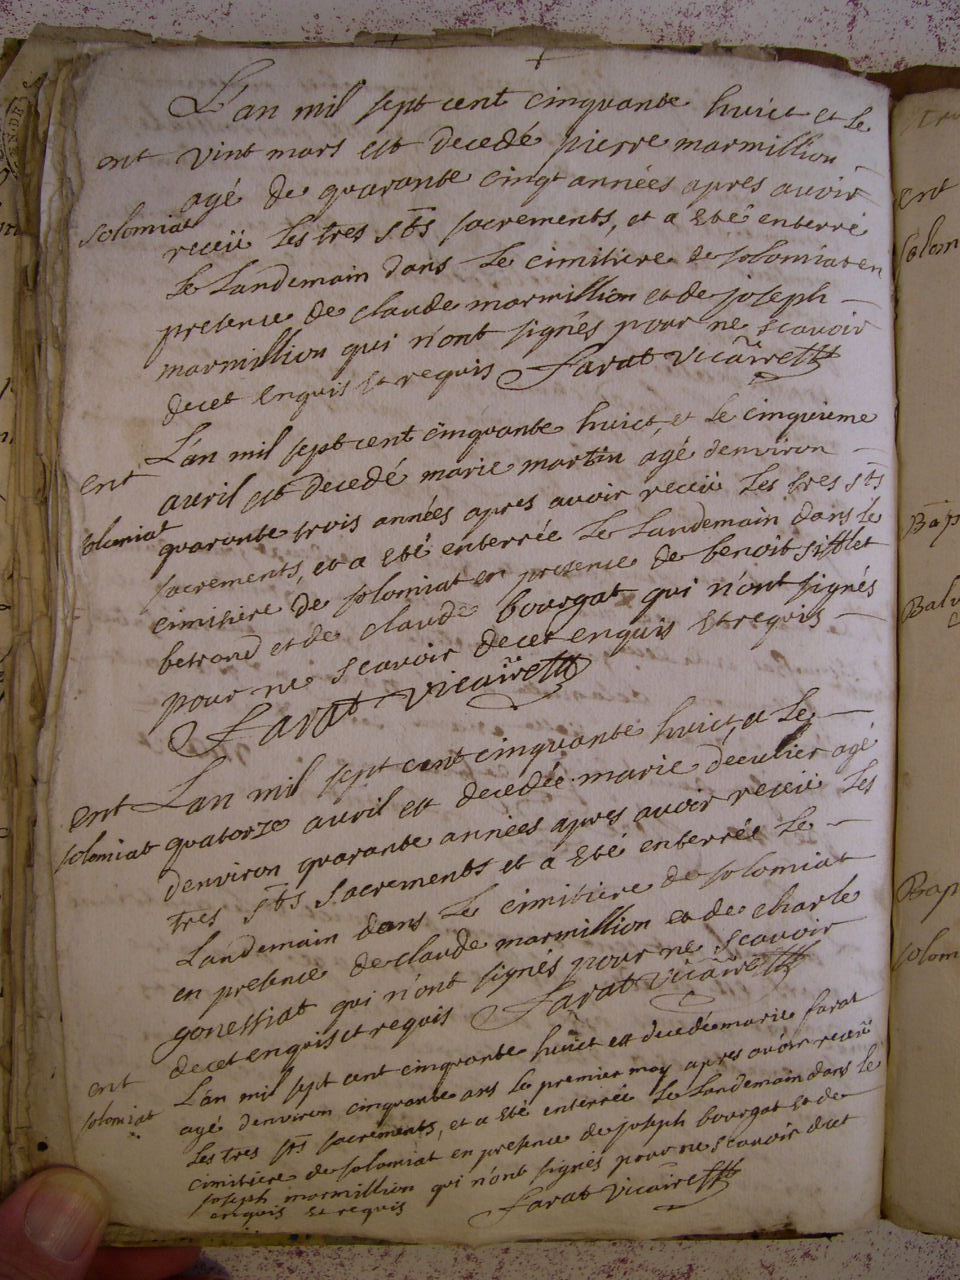 L'an mil sept cent cinquante huict et le
ent vint mars est decedé pierre marmillion
agé de quarante cinqt années apres auoir
solomiat
receü les tres Sts sacrements, et a eté enterré
le Landemain dans le cimitiere de solomiat en
presence de claude marmillion et de joseph
marmillion qui n'ont signés pour ne scauoir
decet enquis et requis Farat vicaire
L'an mil sept cent cinquante huict, et le cinquieme
ent
auril est decedé marie martin agé denuiron
solomiat quarante trois années apres auoir receü les tres Sts
sacrements, et a eté enterrée le Landemain dans le
cimitiere de solomiat en presence de benoit sifflet
betrand et de claude bourgat qui n'ont signés
pour ne scauoir decet enquis et requis
Farat vicaire
ent L'an mil sept cent cinquante huict, et le
solomiat quatorze auril est decedée marie decullier agé
denviron quarante années apres auoir receü les
tres Sts sacrements et a eté enterrée le
Landemain dans le cimitiere de solomiat
en presence de claude marmillion et de charle
gonessiat qui n'ont signés pour ne scauoir
decet enquis et requis Farat vicaire
ent L'an mil sept cent cinquante huict est decedée marie farat
solomiat agé denviron cinquante ans le premier may apres auoir receü
les tres Sts sacréments, et a eté enterrée le Landemain dans le
cimitiere de solomiat en presence de joseph bourgat et de
joseph marmillion qui n'ont signés pour ne scauoir decet
enquis et requis Farat vicaire
ent
solom
Bap
Bap
solom